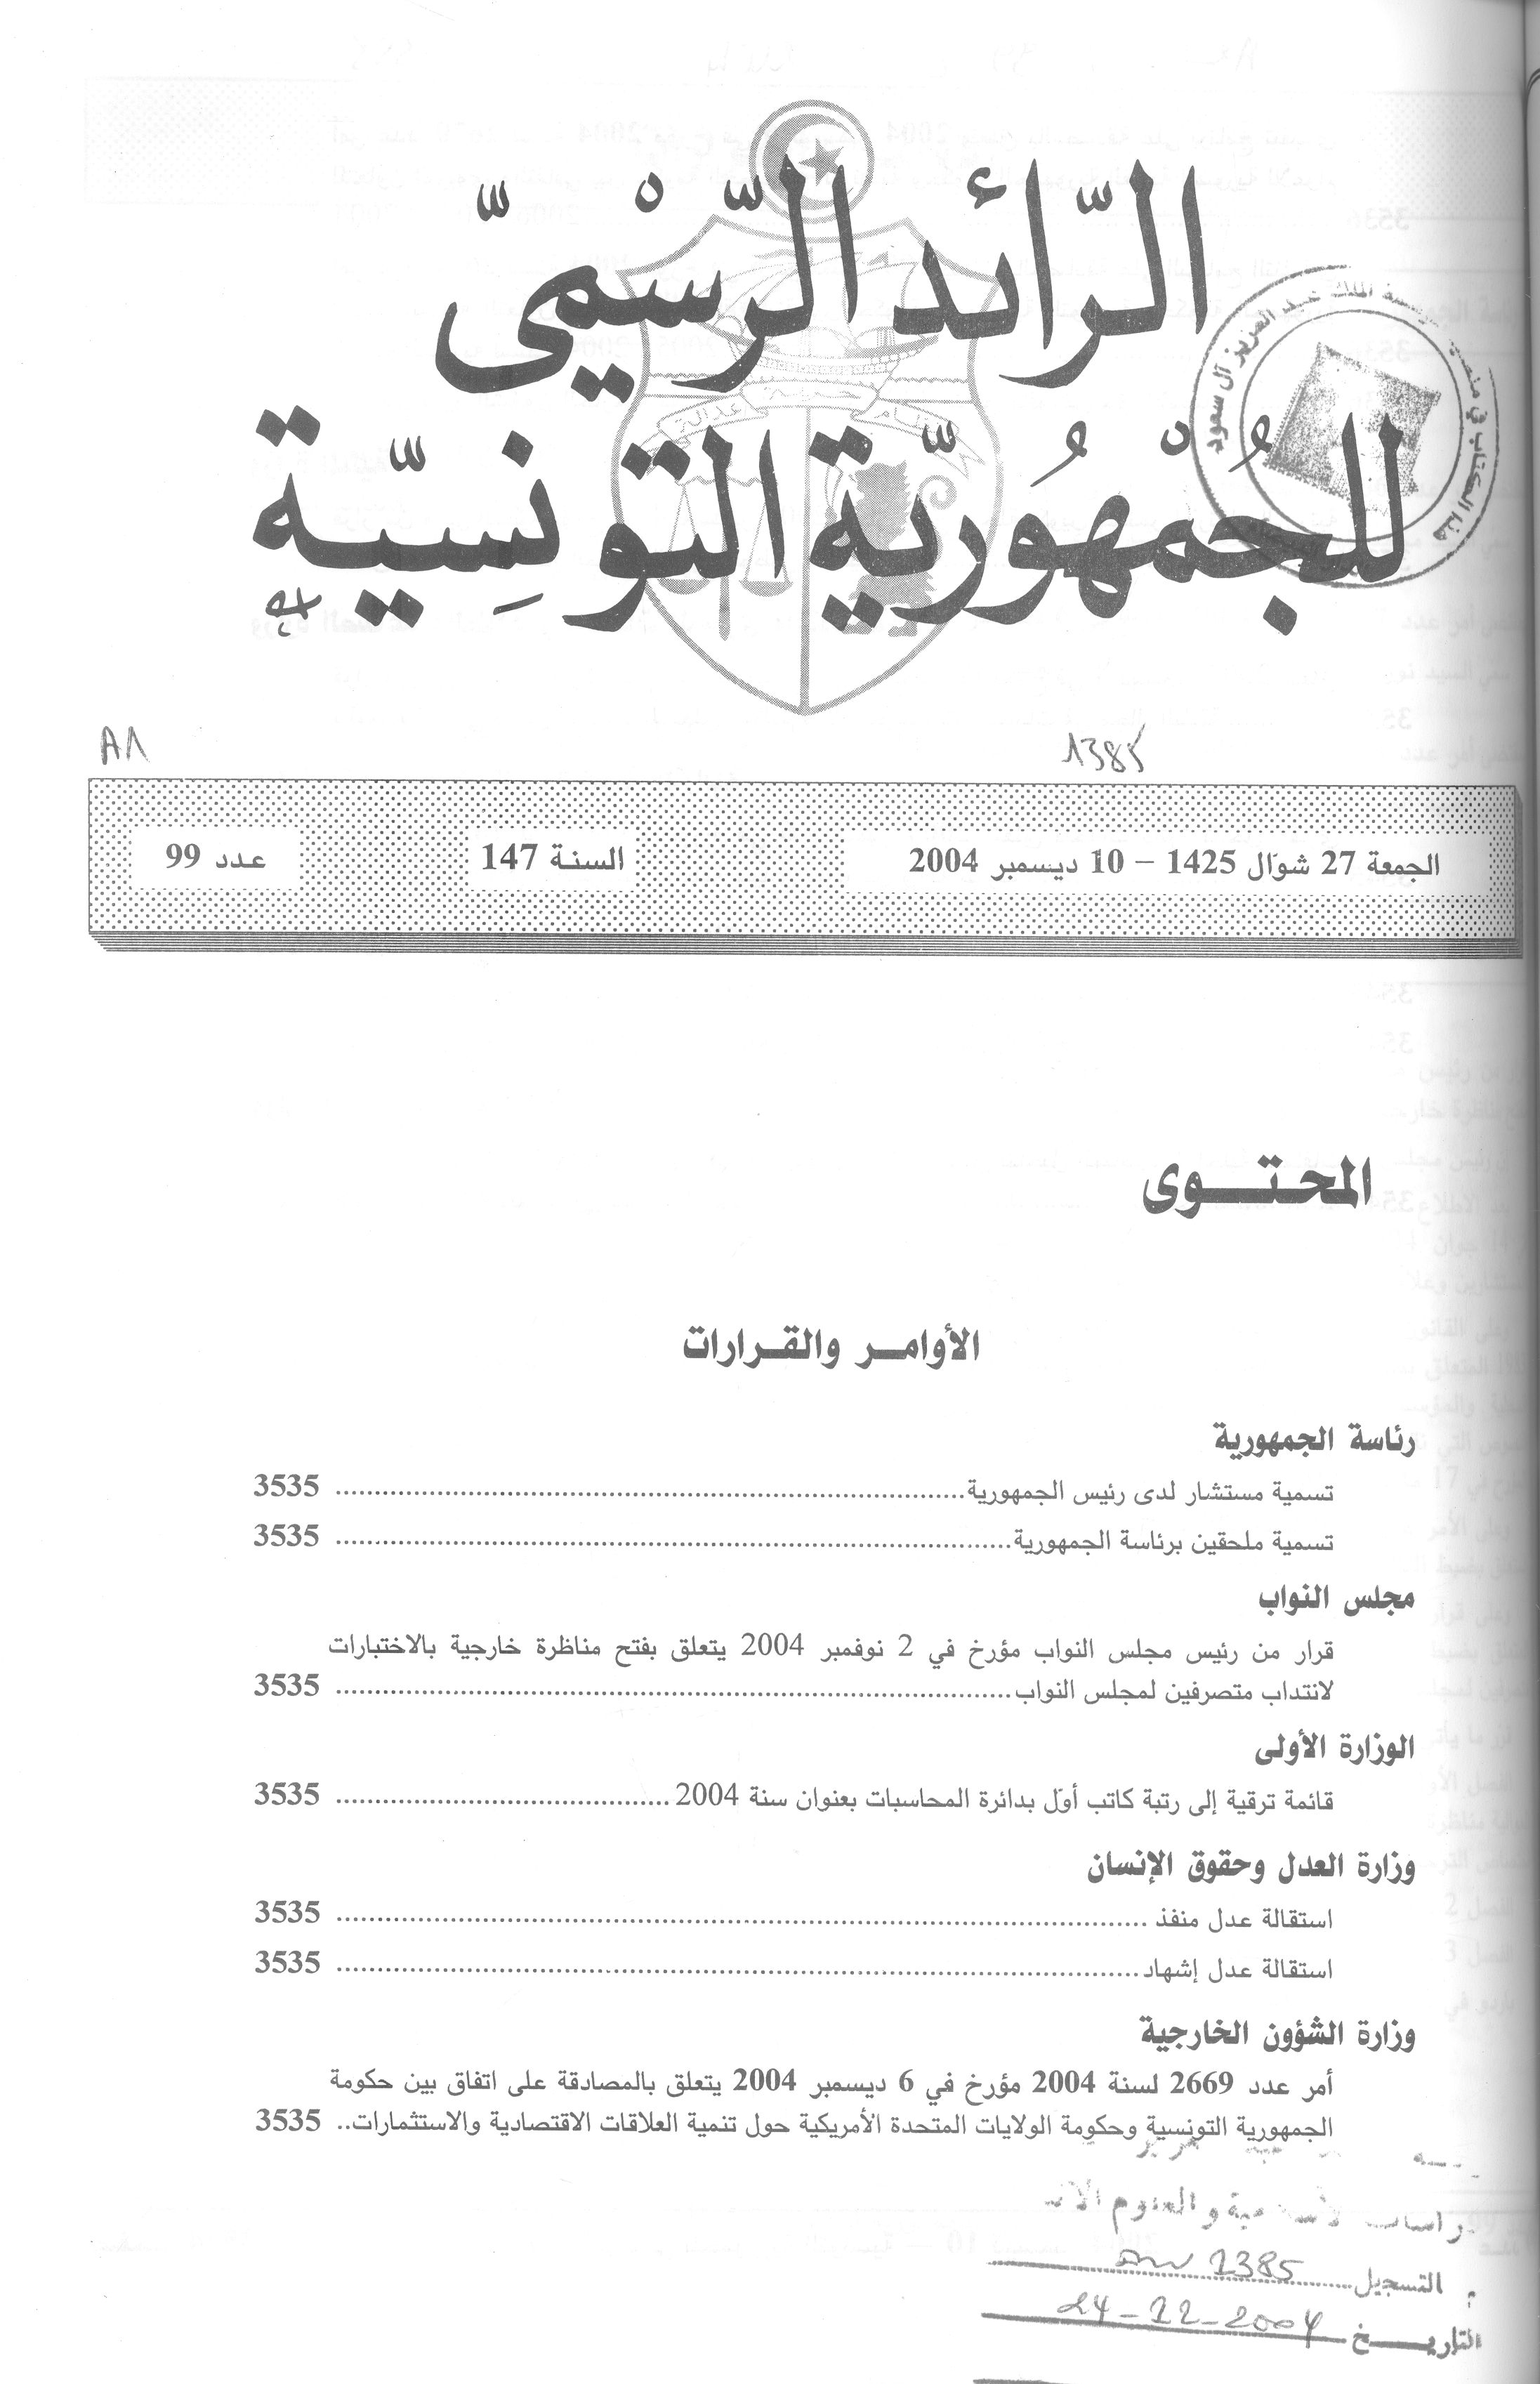 الرّائد الرّسْميّ
للجُمْهُوريّة التونسِيّة
نظام حرية عدالة
A1
1385
الجمعة 27 شوّال 1425 – 10 ديسمبر 2004
السنة 147
عدد 99
المحتوى
الأوامر والقرارات
رئاسة الجمهورية
تسمية مستشار لدى رئيس الجمهورية 3535
تسمية ملحقين برئاسة الجمهورية 3535
مجلس النواب
قرار من رئيس مجلس النواب مؤرخ في 2 نوفمبر 2004 يتعلق بفتح مناظرة خارجية بالاختبارات
لانتداب متصرفين لمجلس النواب 3535
الوزارة الأولى
قائمة ترقية إلى رتبة كاتب أوّل بدائرة المحاسبات بعنوان سنة 2004 3535
وزارة العدل وحقوق الإنسان
استقالة عدل منفذ 3535
استقالة عدل إشهاد 3535
وزارة الشؤون الخارجية
أمر عدد 2669 لسنة 2004 مؤرخ في 6 ديسمبر 2004 يتعلق بالمصادقة على اتفاق بين حكومة
الجمهورية التونسية وحكومة الولايات المتحدة الأمريكية حول تنمية العلاقات الاقتصادية والاستثمارات.. 3535
والعلوم
التسجيل 1385
التاريخ 24-12-2004
الملك عبد العزيز آل سعود
هذا الكتاب في